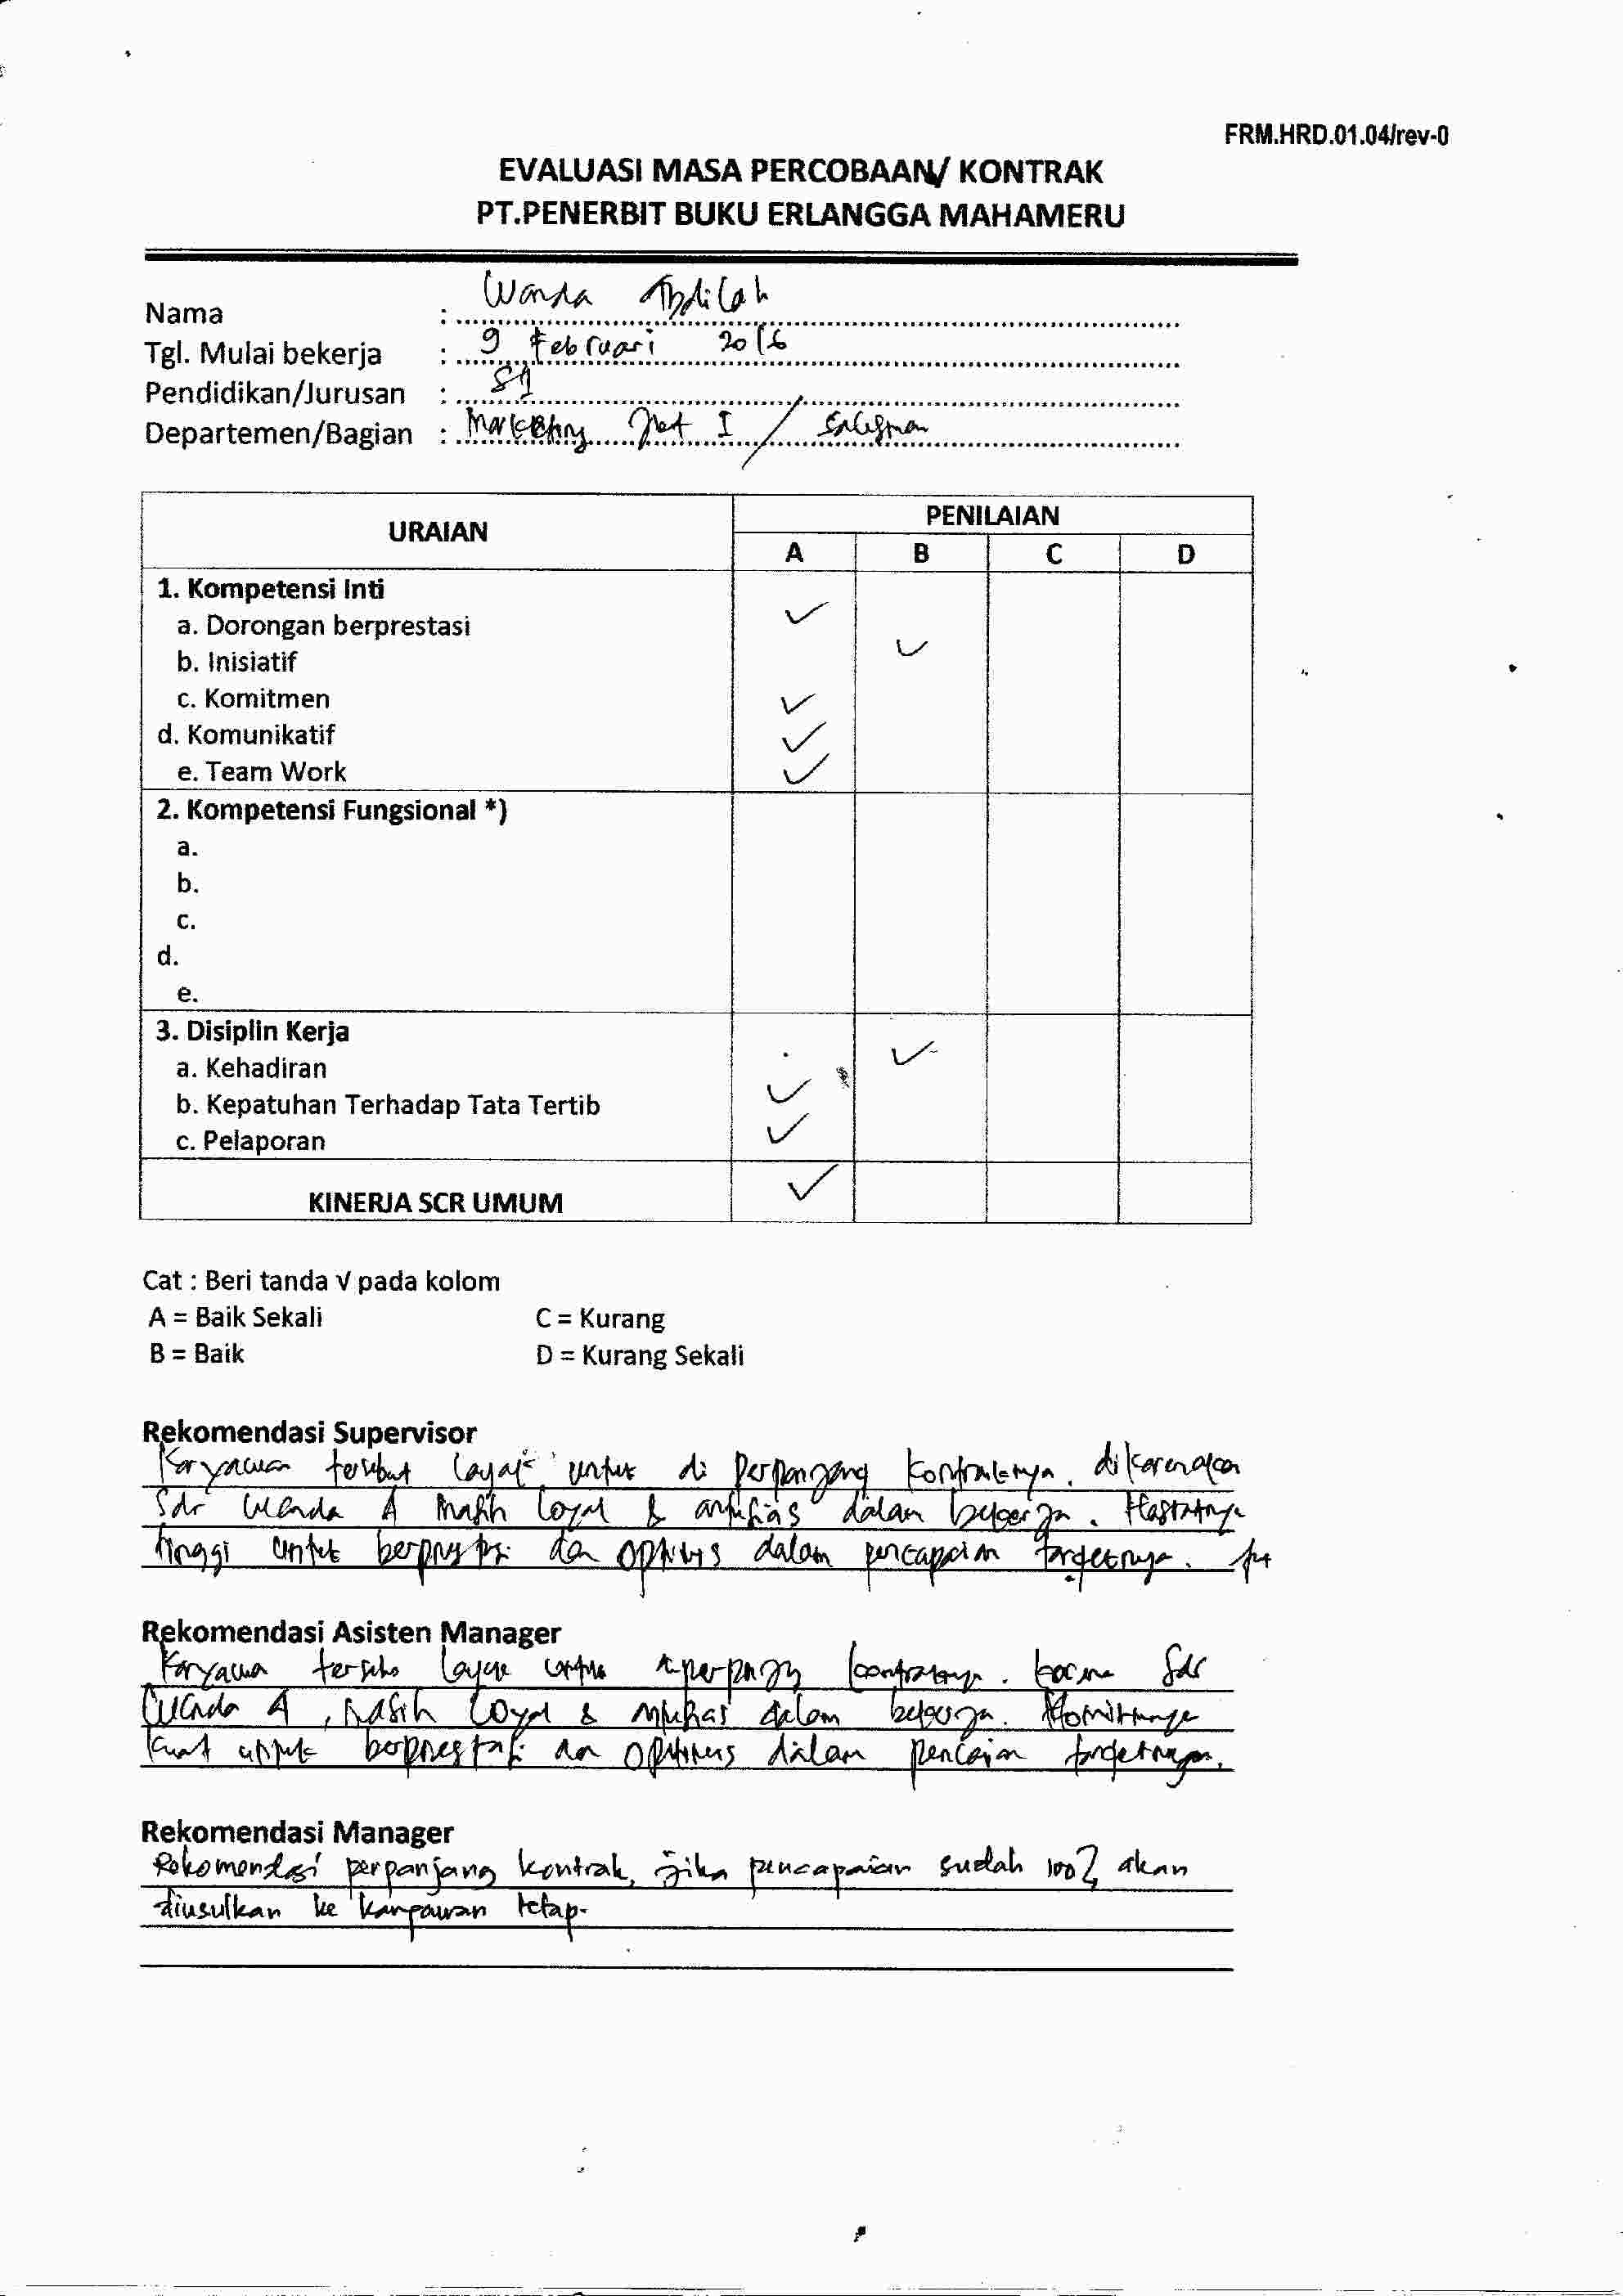 FRM.HRD.01.04/rev-0
EVALUASI MASA PERCOBAAN/ KONTRAK
PT.PENERBIT BUKU ERLANGGA MAHAMERU
Nama : Wanda Abdilah
Tgl. Mulai bekerja : 9 Februari 2016
Pendidikan/Jurusan : S1
Departemen/Bagian : Marketing I / Salesman
URAIAN PENILAIAN
A B C D
1. Kompetensi Inti
a. Dorongan berprestasi ✓
b. Inisiatif ✓
c. Komitmen ✓
d. Komunikatif ✓
e. Team Work ✓
2. Kompetensi Fungsional *)
a.
b.
c.
d.
e.
3. Disiplin Kerja
a. Kehadiran ✓
b. Kepatuhan Terhadap Tata Tertib ✓
c. Pelaporan ✓
KINERJA SCR UMUM ✓
Cat : Beri tanda √ pada kolom
A = Baik Sekali C = Kurang
B = Baik D = Kurang Sekali
Rekomendasi Supervisor
Karyawan tersebut layak untuk di perpanjang kontraknya. dikarenakan
Sdr Wanda A masih loyal & antusias dalam bekerja.
tinggi untuk berprestasi dan optimis dalam pencapaian targetnya.
Rekomendasi Asisten Manager
Karyawan layak untuk kontraknya. karena Sdr
Wanda A, masih loyal & antusias dalam bekerja. Komitmennya
kuat untuk berprestasi dan optimis dalam targetnya.
Rekomendasi Manager
Rekomendasi perpanjang kontrak, jika pencapaian sudah 100% akan
diusulkan ke karyawan tetap.